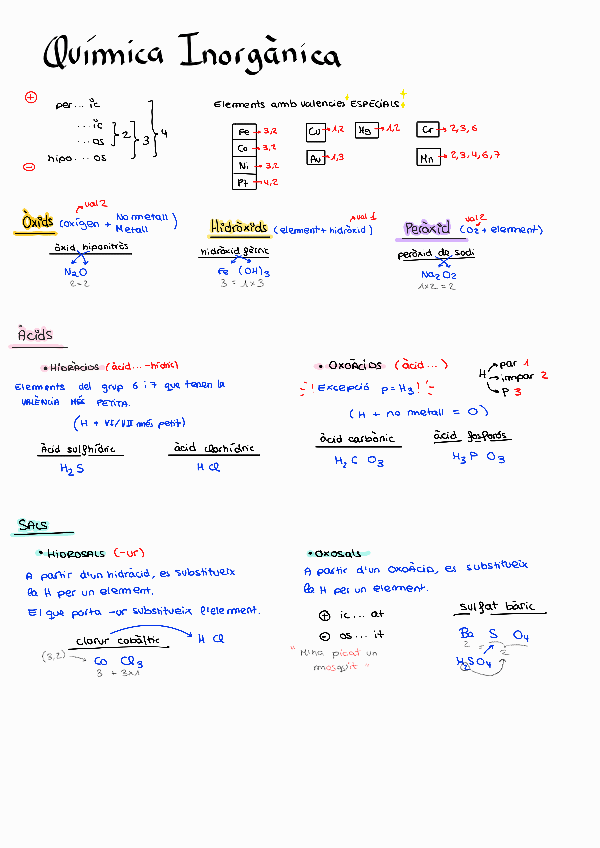 Química Inorgànica
⊕
per... ic
...ic
...os
hipo... os
2
3
4
Elements amb valencies ESPECIALS
Fe → 3,2
Co → 3,2
Ni → 3,2
Pt → 4,2
Cu → 1,2
Hg → 1,2
Cr → 2,3,6
Au → 1,3
Mn → 2,3,4,6,7
⊖
val 2
Òxids (oxígen + No metall
Metall)
òxid hiponitrós
N2O
2=2
val 1
Hidròxids (element + hidròxid)
hidròxid fèrric
Fe (OH)3
3 = 1x3
val 2
Peròxid (O2 + element)
peròxid de sodi
Na2O2
1x2 = 2
Àcids
• HIDRÀCIDS (àcid... -hídric)
Elements del grup 6 i 7 que tenen la
VALÈNCIA MÉS PETITA.
(H + VI/VII més petit)
Àcid sulfhídric
H2S
àcid clorhídric
H Cl
• OXOÀCIDS (àcid...)
H
par 1
impar 2
P 3
! Excepció P = H3 !
(H + no metall = O)
àcid carbònic
H2 C O3
àcid fosforós
H3 P O3
SALS
• HIDROSALS (-ur)
A partir d'un hidràcid, es substitueix
la H per un element.
El que porta -ur substitueix l'element.
clorur cobàltic
H Cl
(3,2)
Co Cl3
3 + 3x1
• OXOSALS
A partir d'un OXOÀCID, es substitueix
la H per un element.
⊕ ic... at
⊖ os... it
" M'ha picat un
mosquit "
sulfat bàric
Ba S O4
2 = 2
H2SO4